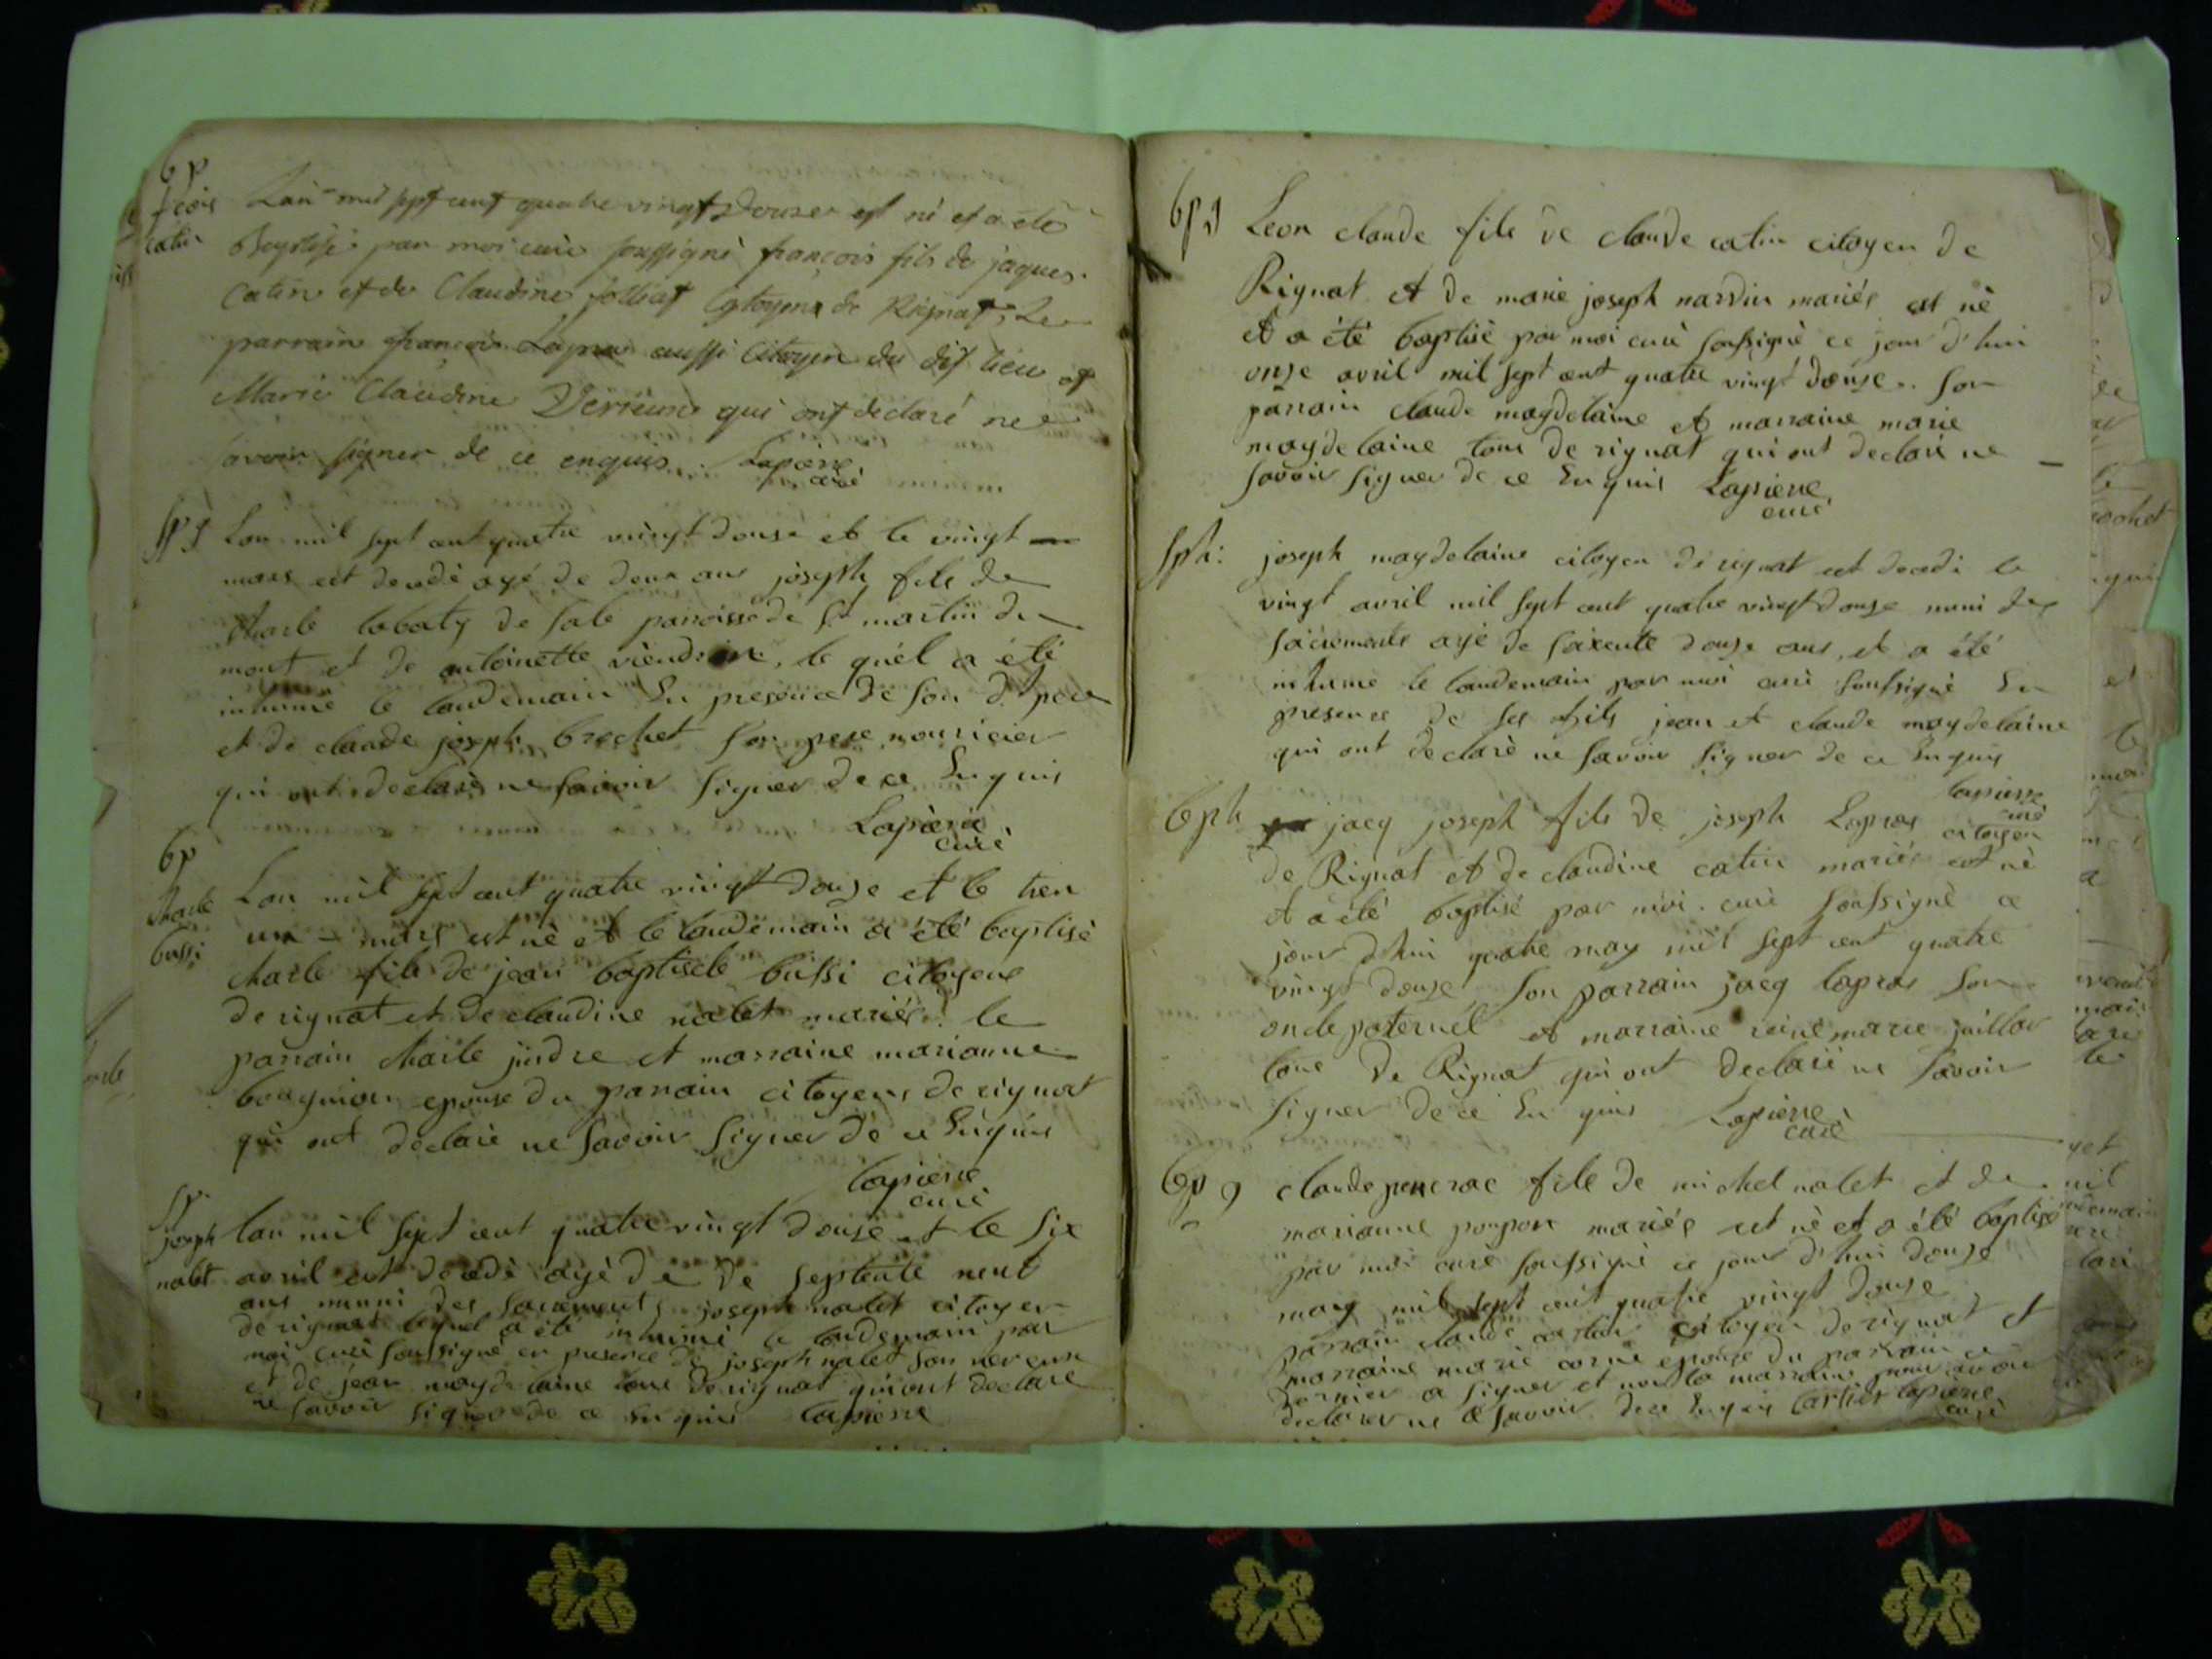 bp
fcois
catin
Lan mil sept cent quatre vingt douze est né et a été
Baptisé par moi curé soussigné françois fils de jaques
Catin et de Claudine jolliet Citoyens de Rignat, Le
parrain françois Lapras aussi Citoyen du dit lieu et
Marie Claudine qui ont declaré ne
savoir signer de ce enquis. Lapierre
curé
Lan mil sept cent quatre vingt douse et le vingt
mars est decedé agé de deux ans joseph fils de
charle de sale paroisse de St martin du
mont et de antoinette le quél a été
inhumé le landemain En presence de son d. pere
et de claude joseph brochet son pere nouricier
qui ont declaré ne savoir signer de ce Enquis
Lapierre
curé
bp
charle
bussi
Lan mil sept cent quatre vingt douze et le tren
un mars est né et le landemain a été baptisé
charle fils de jean baptiste bussi citoyens
de rignat et de claudine nalet mariés le
parrain charle jindre et marraine marianne
epouse du parrain citoyens de rignat
qui ont declaré ne savoir signer de ce Enquis
lapierre
curé
sp
joseph
nalet
lan mil sept cent quatre vingt douse et le six
avril est decedé agé de de septente neuf
ans muni des sacrements joseph nalet citoyen
de rignat lequel a été inhumé le landemain par
moi curé soussigné en presence de joseph nalet son neveux
et de jean maydelaine tous de rignat qui ont declaré
ne savoir signer de ce Enquis lapierre
Leon claude fils de claude catin citoyen de
Rignat et de marie joseph nardin mariés est né
et a été baptisé par moi curé soussigné ce jour d'hui
onze avril mil sept cent quatre vingt douse. son
parrain claude magdelaine et marraine marie
maydelaine tous de rignat qui ont declaré ne
savoir signer de ce Enquis Lapierre
curé
joseph maydelaine citoyen de rignat est decedé le
vingt avril mil sept cent quatre vingt douze muni des
sacrements agé de soixente douze ans, et a été
inhumé le landemain par moi curé soussigné En
presence de ses fils jean et claude maydelaine
qui ont declaré ne savoir signer de ce Enquis
lapierre
curé
bph
jacq joseph fils de joseph Lapras citoyen
de Rignat et de claudine catin mariés est né
et a été baptisé par moi curé soussigné ce
jour d'hui quatre may mil sept cent quatre
vingt douze son parrain jacq lapras son
oncle paternél et marraine reine marie juillar
tous de Rignat qui ont declaré ne savoir
signer de ce Enquis Lapierre
curé
claude pancrac fils de michel nalet et de
marianne ponpon mariés est né et a été baptisé
par moi curé soussigné ce jour d'hui douze
may mil sept cent quatre vingt douse
parrain claude citoyen de rignat et
marraine marie epouse du parrain ce
dernier a signer et non la marraine pour avoir
declarer ne savoir de ce Enquis lapierre
curé